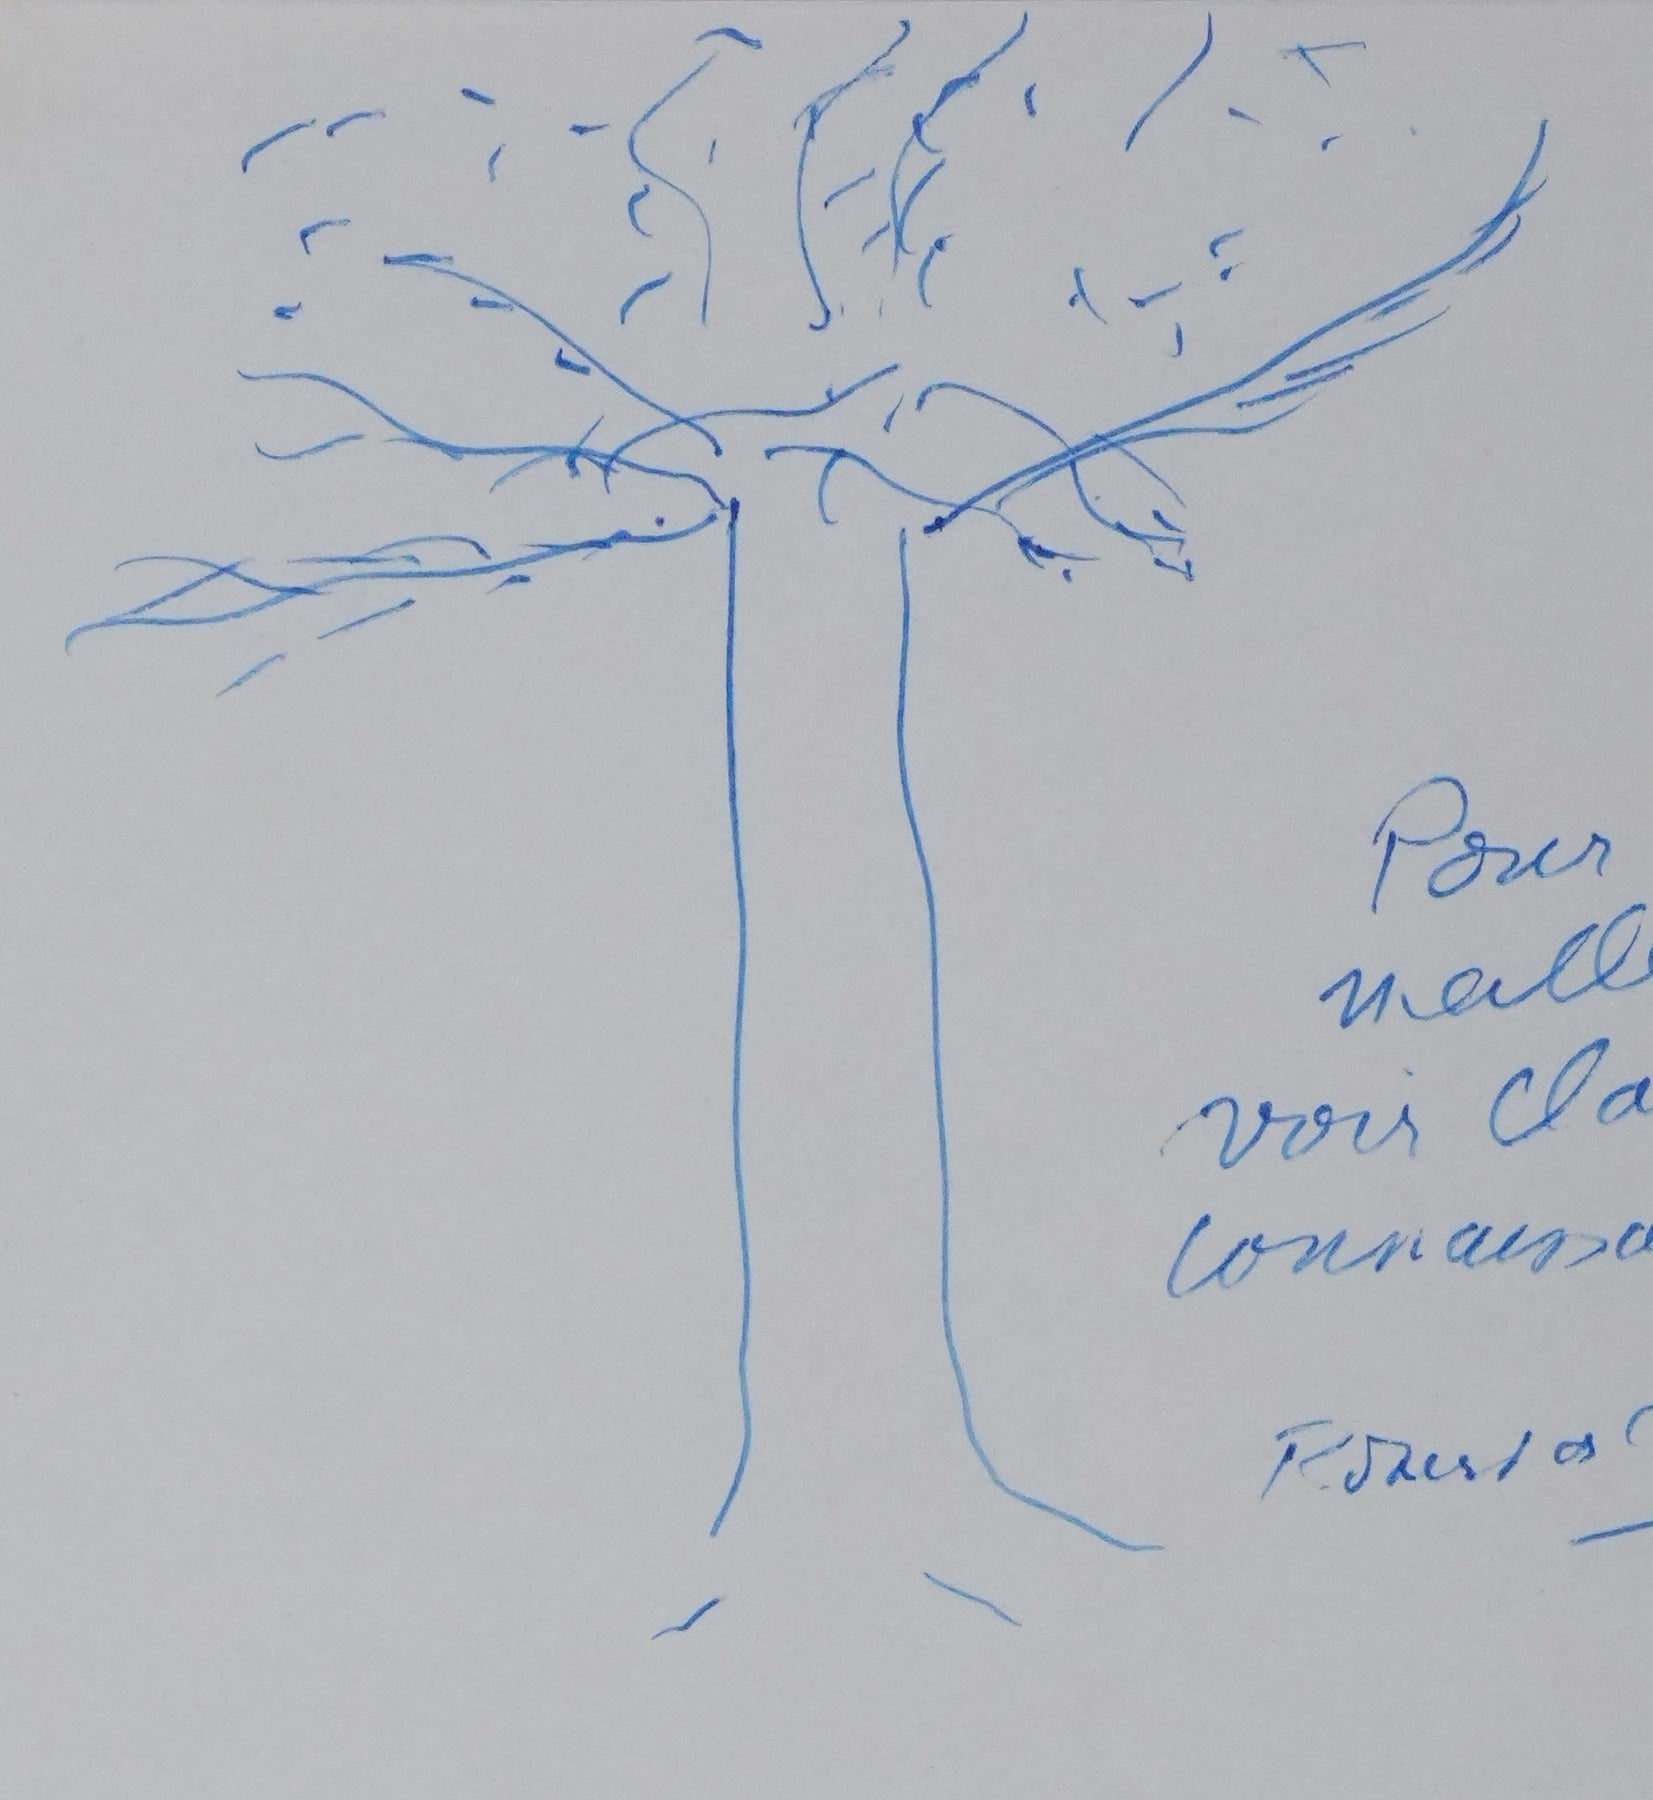 Pour
mall
voir Cla
connaissa